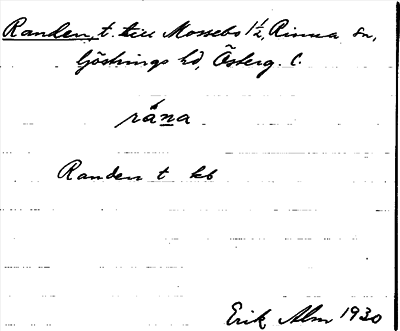 Randen, t. till Mossebo 1/2, Rinna sn,
Göstrings hd, Österg. l.
råna
Randen t kb
Erik Alm 1930